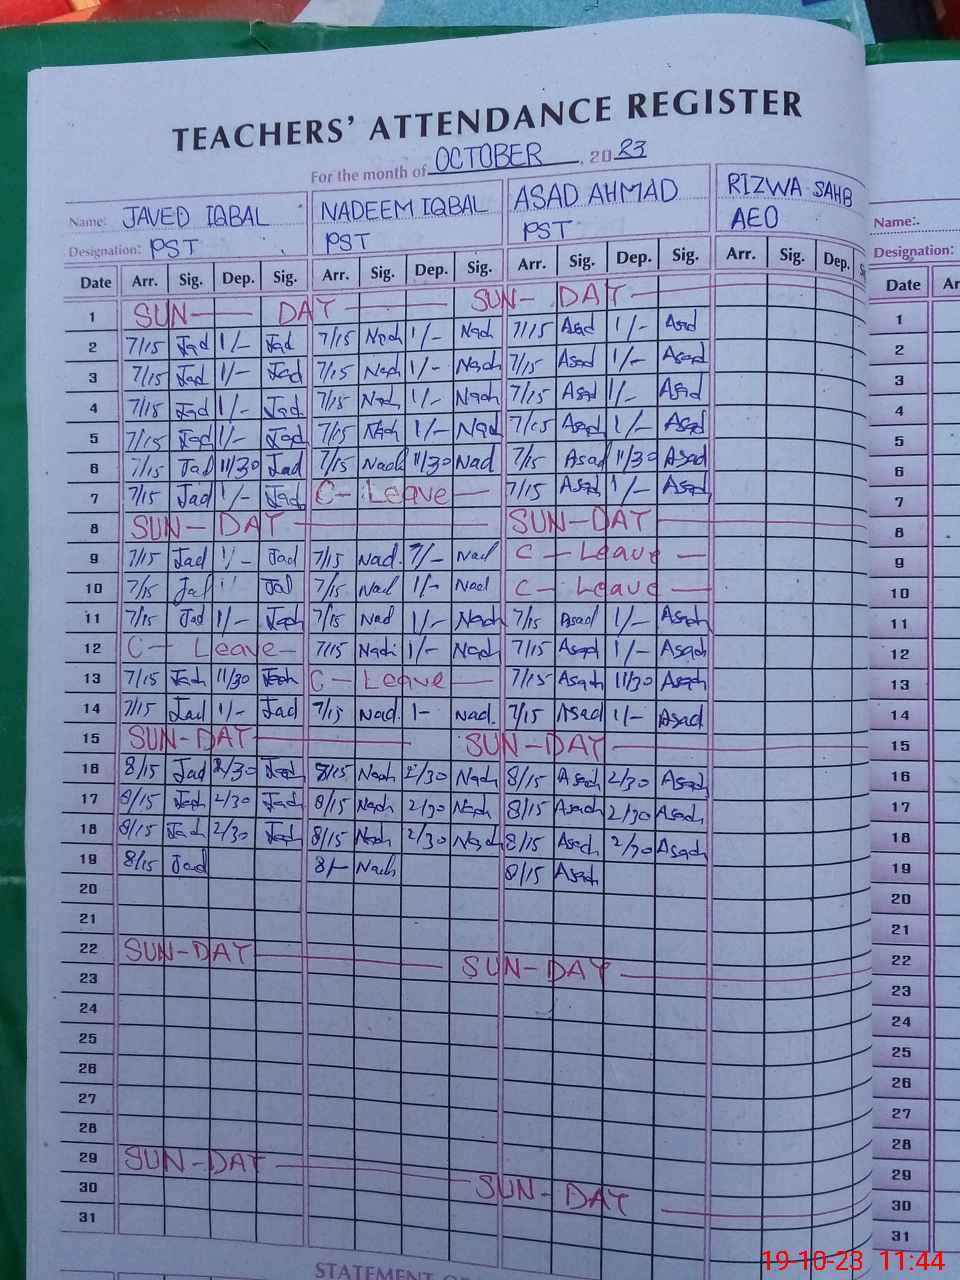 TEACHERS' ATTENDANCE REGISTER
For the month of OCTOBER, 2023
Name: JAVED IQBAL NADEEM IQBAL ASAD AHMAD RIZWA SAHB Name:
Designation: PST PST PST AEO Designation:
Date Arr. Sig. Dep. Sig. Arr. Sig. Dep. Sig. Arr. Sig. Dep. Sig. Arr. Sig. Dep. Date
1 SUN- DAY SUN- DAY 1
2 7/15 Jad 1/- Jad 7/15 Nad 1/- Nad 7/15 Asad 1/- Asad 2
3 7/15 Jad 1/- Jad 7/15 Nad 1/- Nad 7/15 Asad 1/- Asad 3
4 7/15 Jad 1/- Jad 7/15 Nad 1/- Nad 7/15 Asad 1/- Asad 4
5 7/15 Jad 1/- Jad 7/15 Nad 1/- Nad 7/15 Asad 1/- Asad 5
6 7/15 Jad 11/30 Jad 7/15 Nad 11/30 Nad 7/15 Asad 11/30 Asad 6
7 7/15 Jad 1/- Jad C- Leave 7/15 Asad 1/- Asad 7
8 SUN-DAY SUN-DAY 8
9 7/15 Jad 1/- Jad 7/15 Nad 1/- Nad C- Leave 9
10 7/15 Jad Jad 7/15 Nad 1/- Nad C- Leave 10
11 7/15 Jad 1/- Jad 7/15 Nad 1/- Nad 7/15 Asad 1/- Asad 11
12 C- Leave 7/15 Nad 1/- Nad 7/15 Asad 1/- Asad 12
13 7/15 Jad 11/30 Jad C- Leave 7/15 Asad 11/30 Asad 13
14 7/15 Jad 1/- Jad 7/15 Nad. 1- Nad. 7/15 Asad 1/- Asad 14
15 SUN-DAY SUN-DAY 15
16 8/15 Jad 2/30 Jad 8/15 Nad 2/30 Nad 8/15 Asad 2/30 Asad 16
17 8/15 Jad 2/30 Jad 8/15 Nad 2/30 Nad 8/15 Asad 2/30 Asad 17
18 8/15 Jad 2/30 Jad 8/15 Nad 2/30 Nad 8/15 Asad 2/30 Asad 18
19 8/15 Jad 8/- Nad 8/15 Asad 19
20 20
21 21
22 SUN-DAY SUN-DAY 22
23 23
24 24
25 25
26 26
27 27
28 28
29 SUN-DAY 29
30 SUN-DAY 30
31 31
STATEMENT
19-10-23 11:44